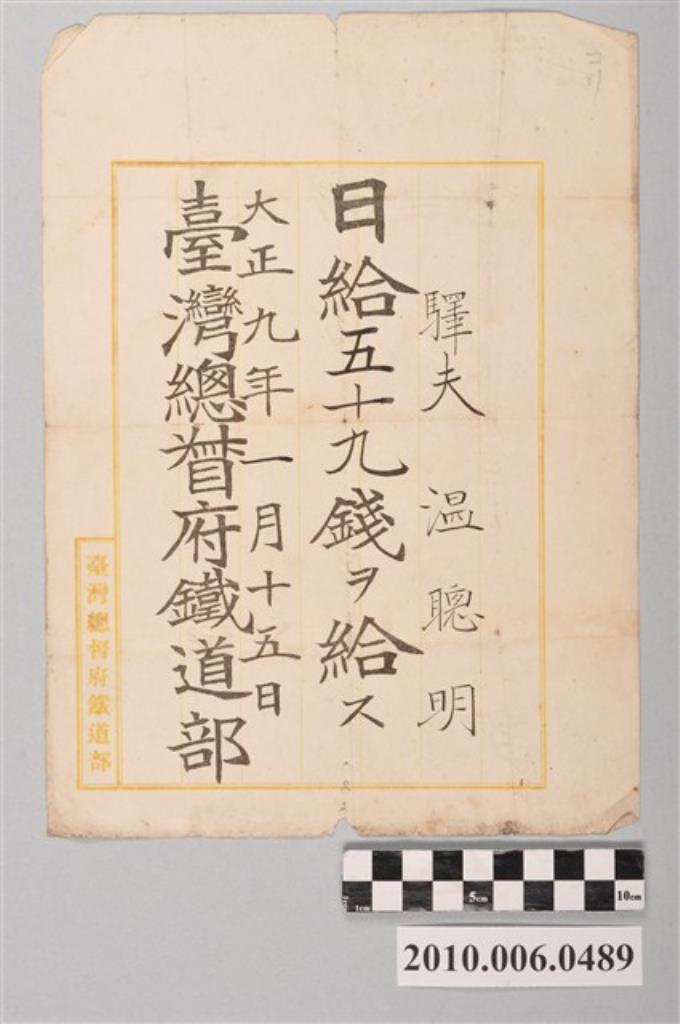 驛夫 溫聰明
日給五十九錢ヲ給ス
大正九年一月十五日
臺灣總督府鐵道部
臺灣總督府鐵道部
1cm 5cm 10cm
2010.006.0489